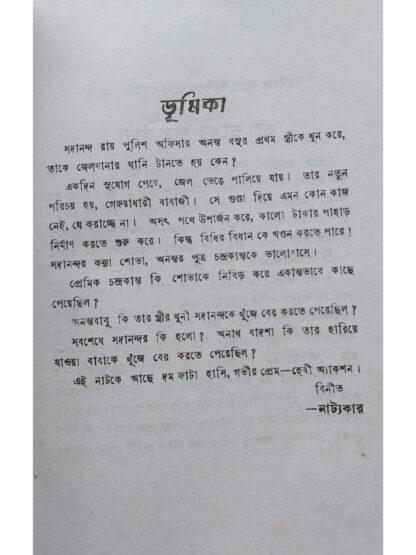 ভূমিকা
সদানন্দ রায় পুলিশ অফিসার অনন্ত বসুর প্রথম স্ত্রীকে খুন করে,
তাকে জেলখানার ঘানি টানতে হয় কেন?
একদিন সুযোগ পেয়ে, জেল ভেঙে পালিয়ে যায়। তার নতুন
পরিচয় হয়, গেরুয়াধারী বাবাজী। সে গুণ্ডা দিয়ে এমন কোন কাজ
নেই, যে করাচ্ছে না। অসৎ পথে উপার্জন করে, কালো টাকার পাহাড়
নির্মাণ করতে শুরু করে। কিন্তু বিধির বিধান কে খণ্ডন করতে পারে!
সদানন্দর কন্যা শোভা, অনন্তর পুত্র চন্দ্রকান্তকে ভালোবাসে।
প্রেমিক চন্দ্রকান্ত কি শোভাকে নিবিড় করে একান্তভাবে কাছে
পেয়েছিল?
অনন্তবাবু কি তার স্ত্রীর খুনী সদানন্দকে খুঁজে বের করতে পেরেছিল?
সবশেষে সদানন্দর কি হলো? অনাথ বাদশা কি তার হারিয়ে
যাওয়া বাবাকে খুঁজে বের করতে পেরেছিল?
এই নাটকে আছে দম ফাটা হাসি, গভীর প্রেম—হেবী অ্যাকশন।
বিনীত
—নাট্যকার